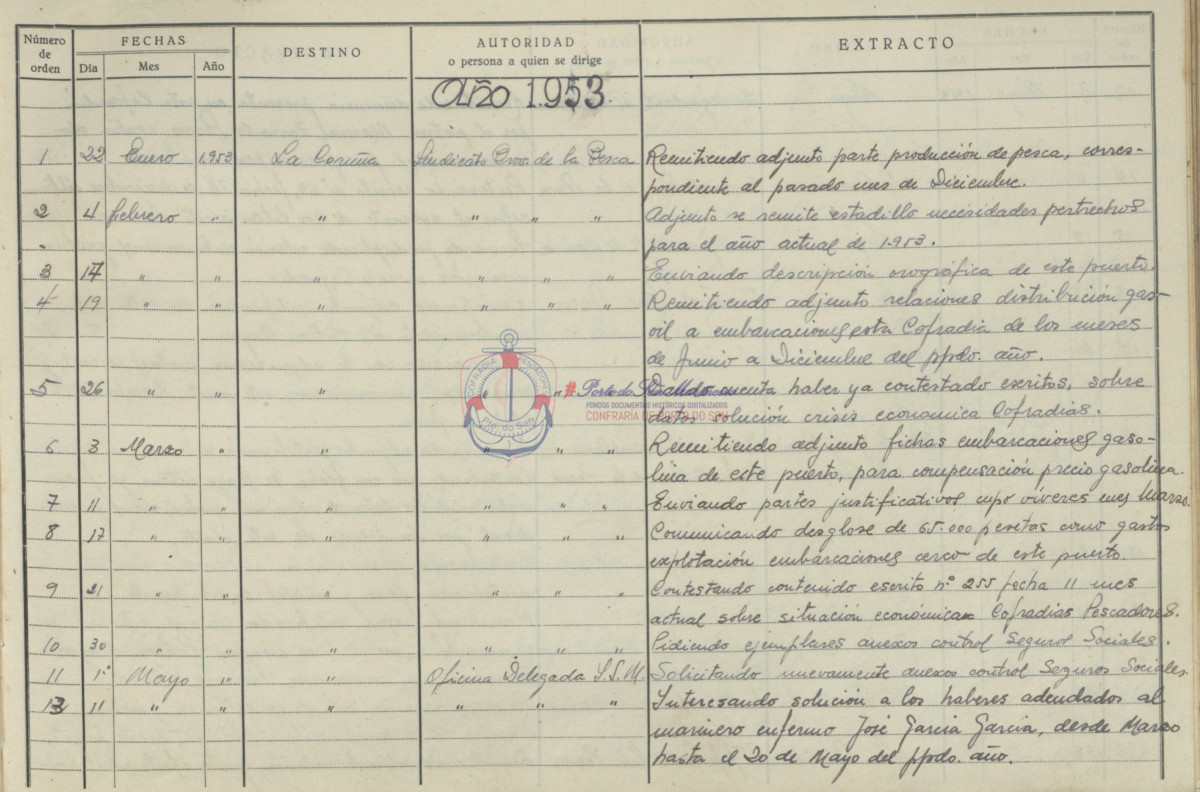 Número de orden | FECHAS | DESTINO | AUTORIDAD o persona a quien se dirige | EXTRACTO
Día | Mes | Año
Año 1.953.
1 | 22 | Enero | 1.953 | La Coruña | Sindicato Prov. de la Pesca | Remitiendo adjunto parte producción de pesca, corres-
pondiente al pasado mes de Diciembre.
2 | 4 | febrero | " | " | " " " | Adjunto se remite estadillo necesidades pertrechos
para el año actual de 1.953.
3 | 17 | " | " | " | " " " | Enviando descripción orográfica de este puerto.
4 | 19 | " | " | " | " " " | Remitiendo adjunto relaciones distribución gas-
oil a embarcaciones esta Cofradia de los meses
de Junio a Diciembre del ppdo. año.
5 | 26 | " | " | " | " " | Dando cuenta haber ya contestado escritos, sobre
datos solución crisis economica Cofradias.
6 | 3 | Marzo | " | " | " " " | Remitiendo adjunto fichas embarcaciones gaso-
lina de este puerto, para compensación precio gasolina.
7 | 11 | " | " | " | " " " | Enviando partes justificativos cupo víveres mes Marzo.
8 | 17 | " | " | " | " " " | Comunicando desglose de 65.000 pesetas como gastos
explotación embarcaciones cerco de este puerto.
9 | 21 | " | " | " | " " " | Contestando contenido escrito nº 255 fecha 11 mes
actual sobre situación económica Cofradias Pescadores.
10 | 30 | " | " | " | " " " | Pidiendo ejemplares anexos control Seguros Sociales.
11 | 1º | Mayo | " | " | Oficina Delegada S.S.M. | Solicitando nuevamente anexos control Seguros Sociales.
12 | 11 | " | " | " | " " " | Interesando solución a los haberes adeudados al
marinero enfermo José Garcia Garcia, desde Marzo
hasta el 20 de Mayo del ppdo. año.
CONFRARÍA PESCADORES
Pto. do Son
# Porto do Son
FONDOS DOCUMENTAIS HISTÓRICOS DIXITALIZADOS
CONFRARÍA DE PORTO DO SON